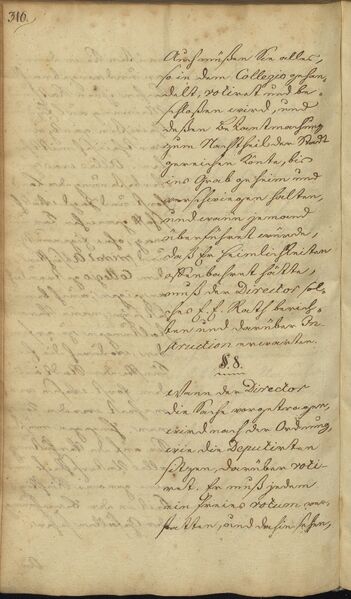 316.
Auch müßen Sie alles,
so in dem Collegio gehan-
delt, votiret und be-
schloßen wird, und
deßen Bekantmachung
zum Nachtheil der Stadt
gereichen könte, bis
ins Grab geheim und
verschwiegen halten,
und wann jemand
überführet würde,
daß Er Heimlichkeiten
offenbahret hätte,
muß der Director sol-
ches E. E. Rath berich-
ten und darüber In-
struction erwarten.
§. 8.
Wann der Director
die Sache vorgetragen,
wird nach der Ordnung
wie die Deputirten
sitzen, darüber voti-
ret. Er muß jedem
ein freies votum ver-
statten, und dahin sehen,